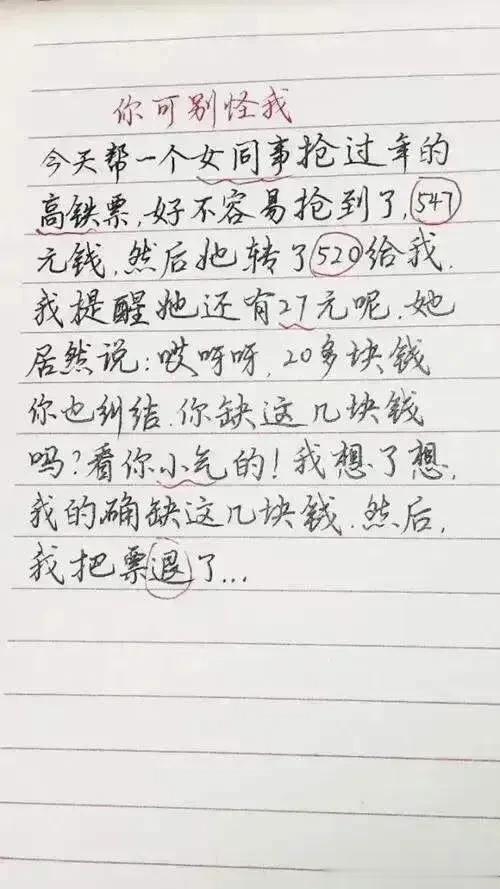 你可别怪我
今天帮一个女同事抢过年的
高铁票,好不容易抢到了,547
元钱,然后她转了520给我,
我提醒她还有27元呢,她
居然说:哎呀呀,20多块钱
你也纠结.你缺这几块钱
吗?看你小气的!我想了想,
我的确缺这几块钱.然后,
我把票退了...